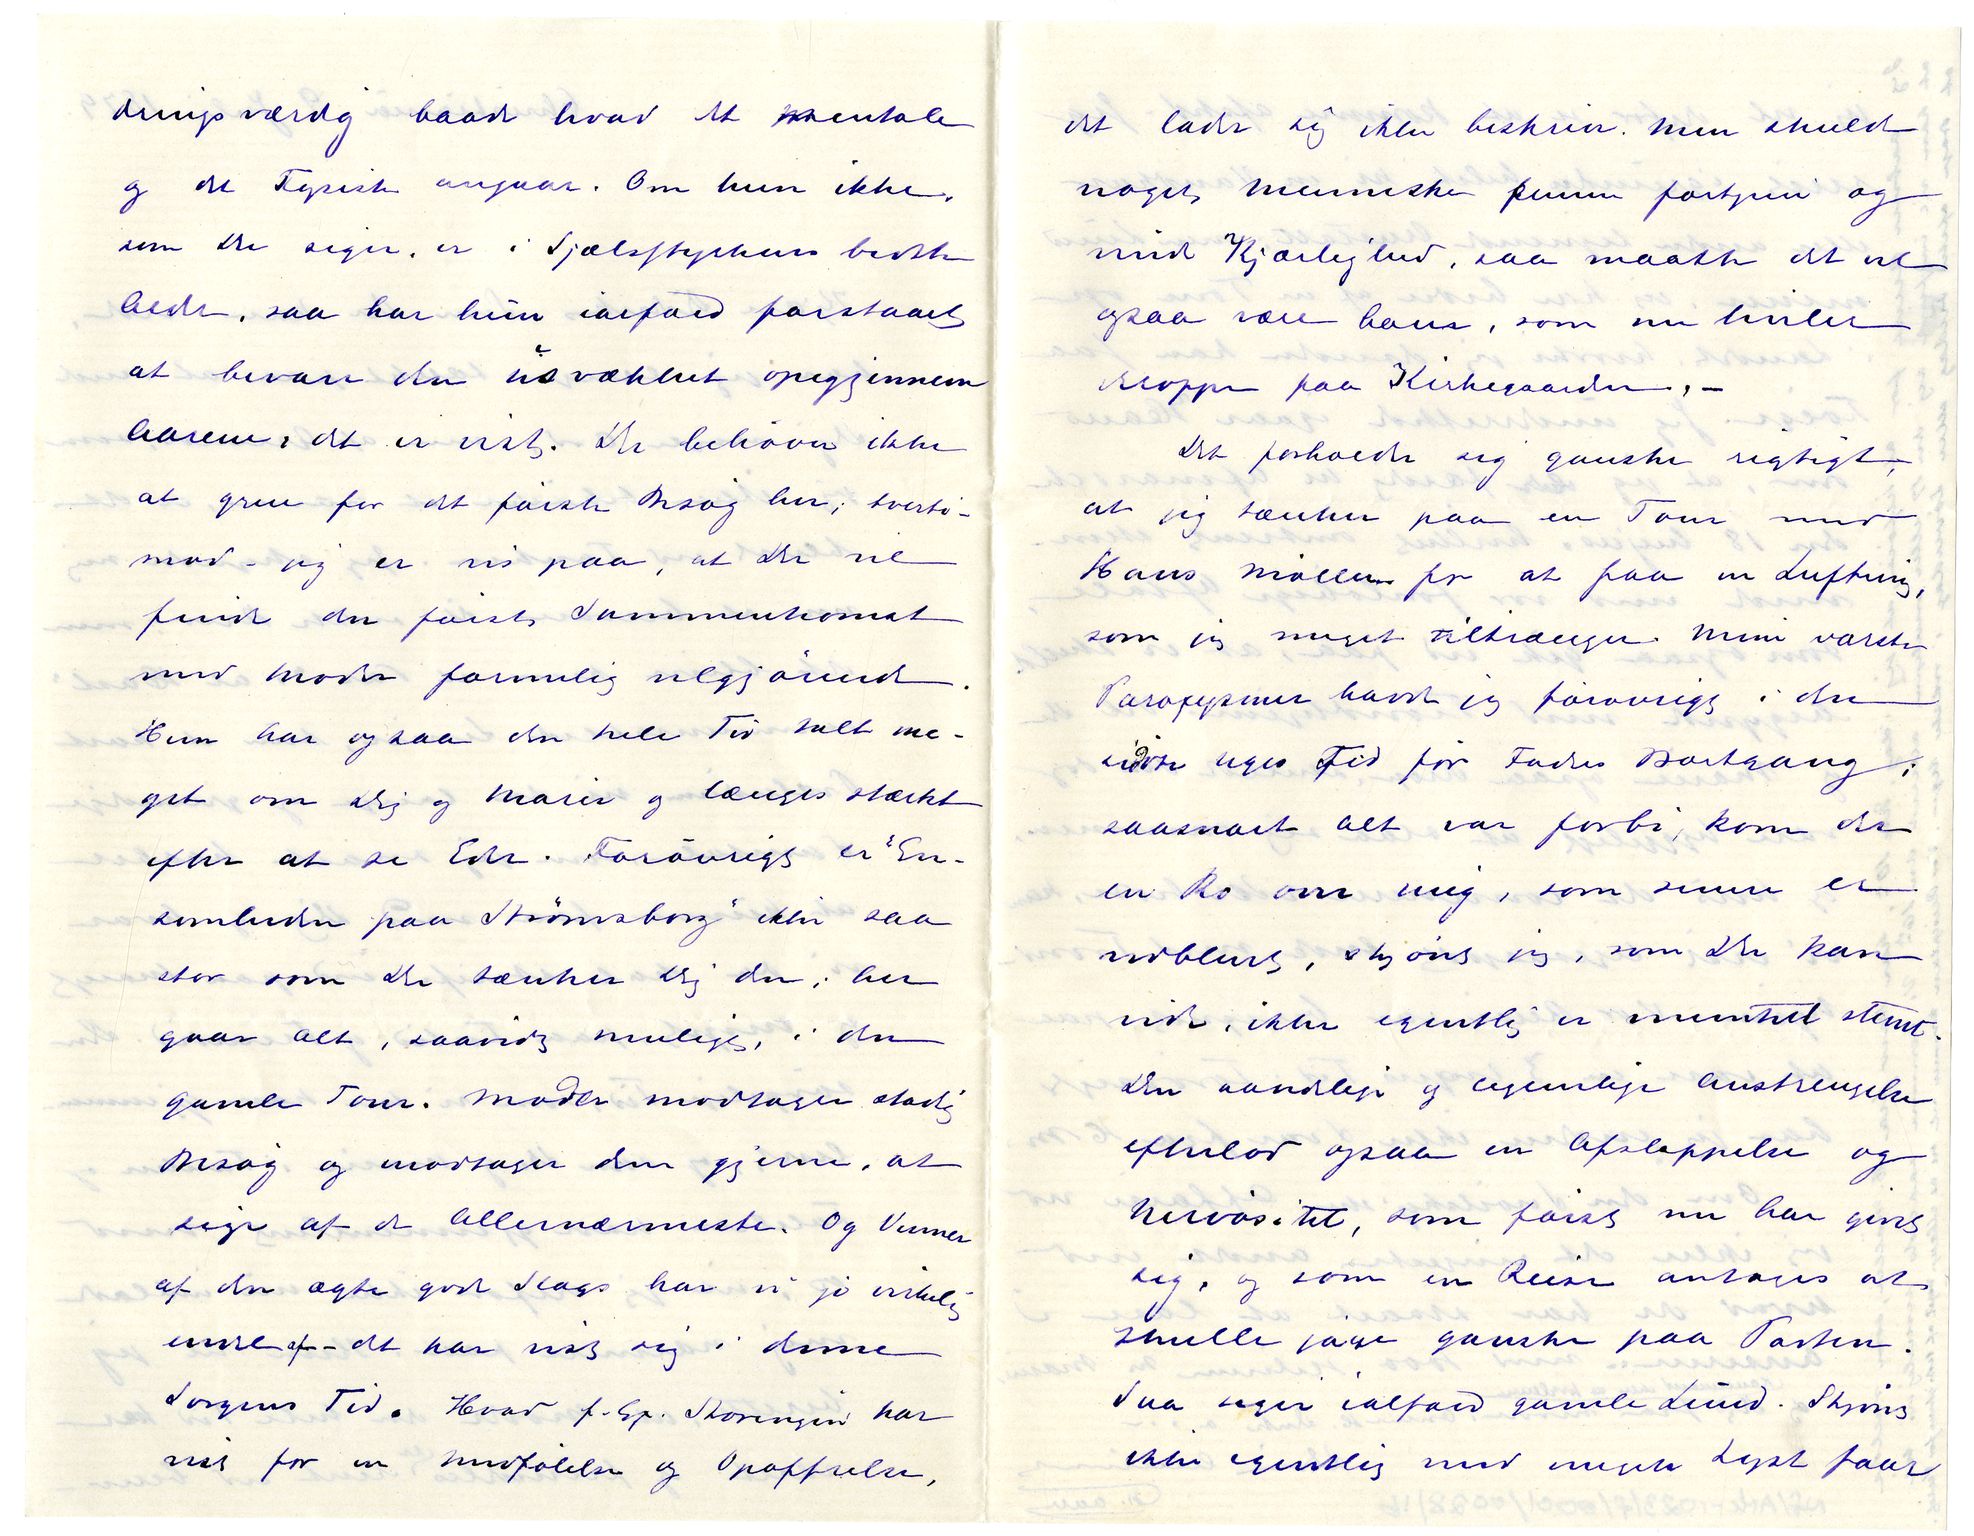 dringsværdig baade hvad det mentale
og det Fysiske angaar. Om hun ikke,
som Du siger, er i Sjælsstyrkens bedste
Alder, saa har hun ialfald forstaaet
at bevare den usvækket op igjennem
Aarene, det er vist. Du behøver ikke
at grue for det første Besøg her; tverti-
mod - jeg er vis paa, at Du vil
finde den første Sammenkomst
med Moder formelig velgjørende.
Hun har ogsaa den hele Tid talt me-
get om Dig og Marie og længes stærkt
efter at se Eder. Forøvrigt er "En-
somheden paa Strømsborg" ikke saa
stor som Du tænker Dig den; her
gaar Alt, saavidt muligt, i den
gamle Tour. Moder modtager stadig
Besøg og modtager dem gjerne, at
sige af de Allernærmeste. Og Venner
af den ægte gode Slags har vi jo virkelig
- det har vist sig i denne
Sorgens Tid. Hvad f. Ex. Thorengin har
vist for en Medfølelse og Opoffrelse,
det lader sig ikke beskrive. Men skulde
noget Menneske kunne fortjene og
vinde Kjærlighed, saa maatte det vel
ogsaa være hans, som nu hviler
deroppe paa Kirkegaarden. -
Det forholder sig ganske rigtigt,
at jeg tænker paa en Tour med
Hans Møller for at faa en Luftning,
som jeg meget tiltrænger. Mine værste
Paroxysmer havde jeg forøvrigt i den
sidste Uges Tid før Faders Bortgang;
saasnart Alt var forbi, kom der
en Ro over mig, som senere er
vedblevet, skjønt jeg, som Du kan
vide, ikke egentlig er muntert stemt.
Den aandelige og legemlige Anstrengelse
efterlod ogsaa en Afslappelse og
Nervøsitet, som først nu har givet
sig, og som en Reise antages at
skulle jage ganske paa Porten.
Saa siger ialfald gamle Lund. Skjønt
ikke egentlig med megen Lyst faar